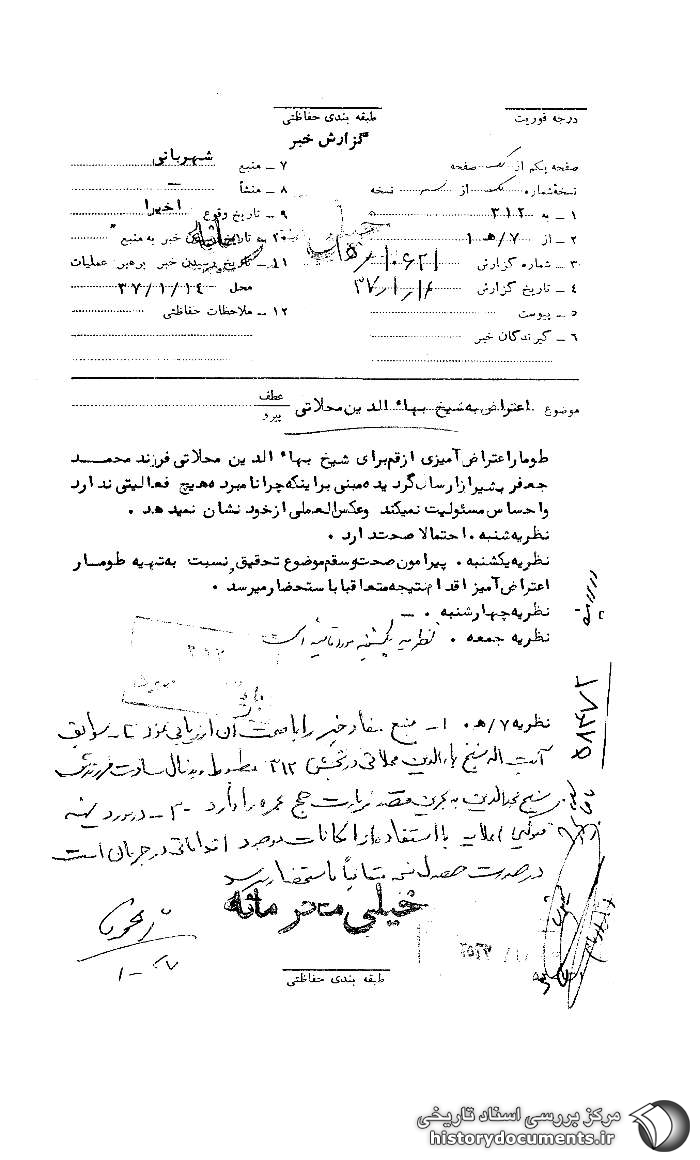 درجه فوریت
طبقه بندی حفاظتی
گزارش خبر
صفحه یکم از یک صفحه
نسخهٔ شماره یک از نسخه
۱ – به ۳۱۲
۲ – از ۷/هـ ۱
۳ – شماره گزارش
۴ – تاریخ گزارش
۵ – پیوست
۶ – گیرندگان خبر
۷ – منبع شهربانی
۸ – منشأ –
۹ – تاریخ وقوع اخیرا
۱۰ – تاریخ رسیدن خبر به منبع "
۱۱ – تاریخ رسیدن خبر برهبر عملیات
محل ۳۷/۱/۱۴
۱۲ – ملاحظات حفاظتی
موضوع اعتراض به شیخ بهاء الدین محلاتی
عطف
پیرو
طومار اعتراض آمیزی از قم برای شیخ بهاء الدین محلاتی فرزند محمد
جعفر بشیراز ارسال گردیده مبنی براینکه چرا نامبرده هیچ فعالیتی ندارد
واحساس مسئولیت نمیکند وعکس العملی از خود نشان نمیدهد .
نظریه شنبه . احتمالا صحت دارد .
نظریه یکشنبه . پیرامون صحت وسقم موضوع تحقیق و نسبت به تهیه طومار
اعتراض آمیز اقدام نتیجه متعاقبا باستحضار میرسد .
نظریه چهارشنبه . –
نظریه جمعه . نظریه یکشنبه مورد تائید است
نظریه ۷/هـ . ۱– منبع مفاد خبر را با صحت آن ارزیابی نمود ۲– سوابق
آیت اله شیخ بهاءالدین محلاتی در بخش ۳۱۲ مضبوط و بدنبال مسافرت فرزندش
شیخ مجدالدین به بحرین قصد زیارت حج عمره را دارد ۳– در مورد تهیه
با استفاده از امکانات موجود اقداماتی در جریان است
در صورت حصول نتیجه متعاقباً باستحضار میرسد
خیلی محرمانه
طبقه بندی حفاظتی
مرکز بررسی اسناد تاریخی
historydocuments.ir